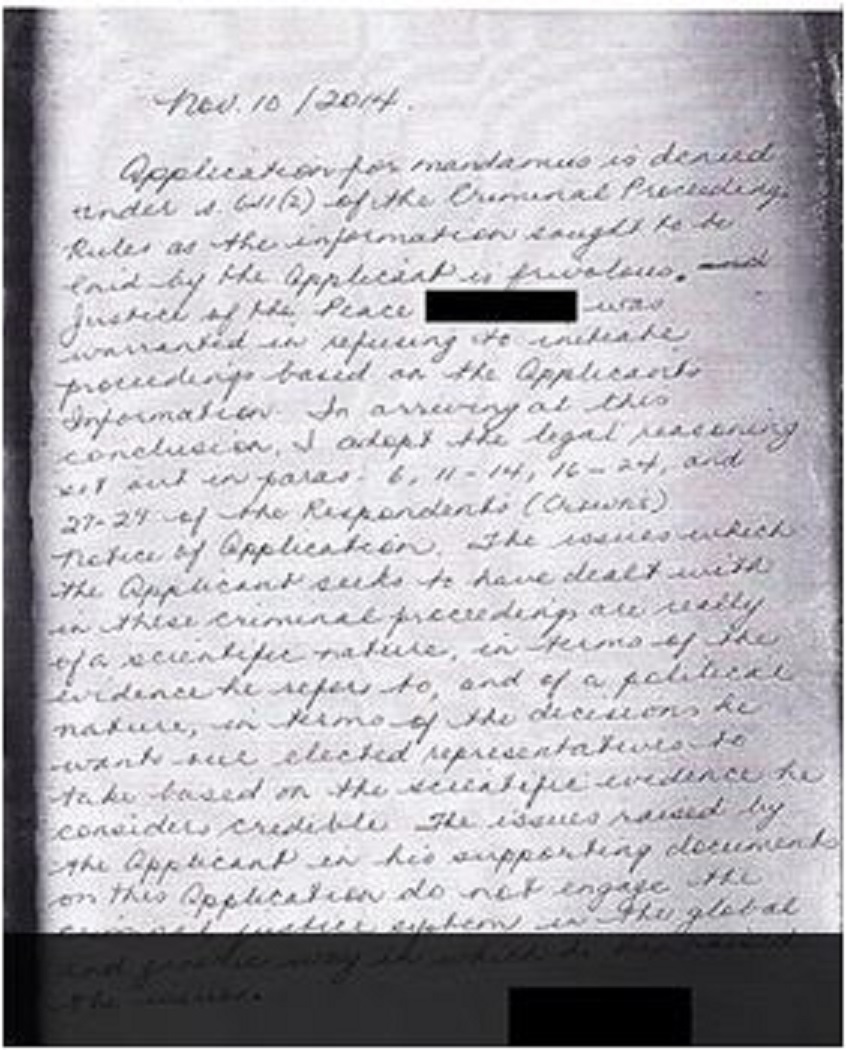 Nov. 10 / 2014.
Application for mandamus is denied
under s. 6.11(2) of the Criminal Proceedings
Rules as the information sought to be
laid by the Applicant is frivolous.
Justice of the Peace was
warranted in refusing to initiate
proceedings based on the Applicants
Information. In arriving at this
conclusion, I adopt the legal reasoning
set out in paras. 6, 11-14, 16-24, and
27-29 of the Respondents (Crowns)
Notice of Application. The issues which
the Applicant seeks to have dealt with
in these criminal proceedings are really
of a scientific nature, in terms of the
evidence he refers to, and of a political
nature, in terms of the decisions he
wants our elected representatives to
take based on the scientific evidence he
considers credible. The issues raised by
the Applicant in his supporting documents
on this Application do not engage the
criminal justice system in the global
and way in which he has raised
the issues.